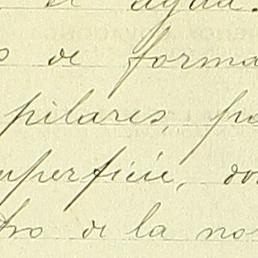 de agua.
s de forma
pilares, pa
uperficie, do
tro de la no